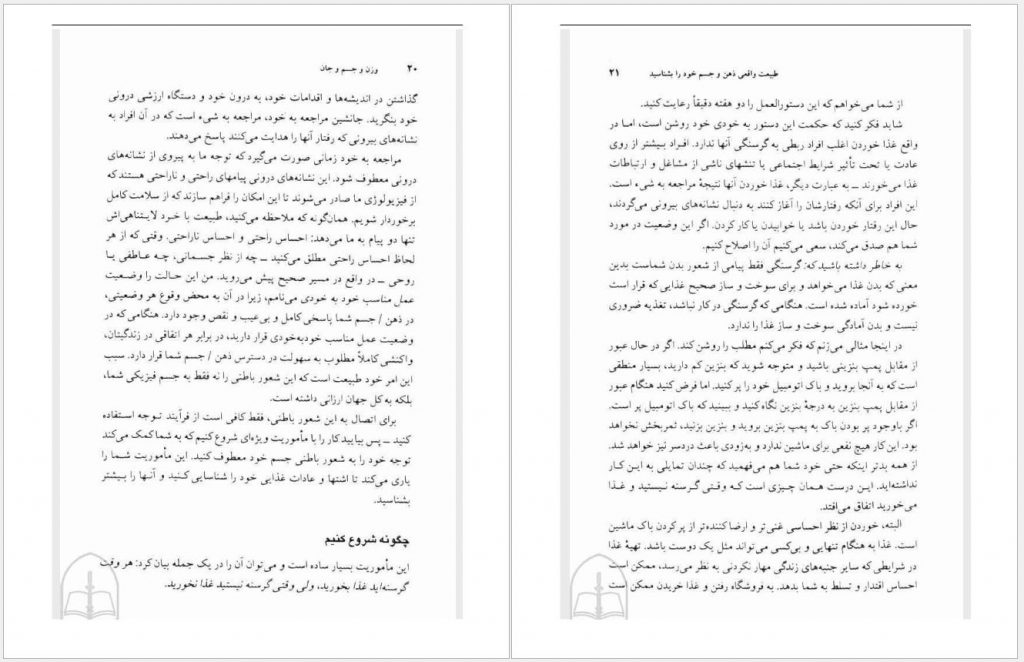 ۲۰ وزن و جسم و جان
گذاشتن در اندیشه‌ها و اقدامات خود، به درون خود و دستگاه ارزشی درونی
خود بنگرید. جانشین مراجعه به خود، مراجعه به شیء است که در آن افراد به
نشانه‌های بیرونی که رفتار آنها را هدایت می‌کنند پاسخ می‌دهند.
مراجعه به خود زمانی صورت می‌گیرد که توجه ما به پیروی از نشانه‌های
درونی معطوف شود. این نشانه‌های درونی پیامهای راحتی و ناراحتی هستند که
از فیزیولوژی ما صادر می‌شوند تا این امکان را فراهم سازند که از سلامت کامل
برخوردار شویم. همان‌گونه که ملاحظه می‌کنید، طبیعت با خرد لایتناهی‌اش
تنها دو پیام به ما می‌دهد: احساس راحتی و احساس ناراحتی. وقتی که از هر
لحاظ احساس راحتی مطلق می‌کنید ــ چه از نظر جسمانی، چه عاطفی یا
روحی ــ در واقع در مسیر صحیح پیش می‌روید. من این حالت را وضعیت
عمل مناسب خود به خودی می‌نامم، زیرا در آن به محض وقوع هر وضعیتی،
در ذهن / جسم شما پاسخی کامل و بی‌عیب و نقص وجود دارد. هنگامی که در
وضعیت عمل مناسب خودبه‌خودی قرار دارید، در برابر هر اتفاقی در زندگیتان،
واکنشی کاملاً مطلوب به سهولت در دسترس ذهن / جسم شما قرار دارد. سبب
این امر خود طبیعت است که این شعور باطنی را نه فقط به جسم فیزیکی شما،
بلکه به کل جهان ارزانی داشته است.
برای اتصال به این شعور باطنی، فقط کافی است از فرآیند توجه استفاده
کنید ــ پس بیایید کار را با مأموریت ویژه‌ای شروع کنیم که به شما کمک می‌کند
توجه خود را به شعور باطنی جسم خود معطوف کنید. این مأموریت شما را
یاری می‌کند تا اشتها و عادات غذایی خود را شناسایی کنید و آنها را بیشتر
بشناسید.
چگونه شروع کنیم
این مأموریت بسیار ساده است و می‌توان آن را در یک جمله بیان کرد: هر وقت
گرسنه‌اید غذا بخورید، ولی وقتی گرسنه نیستید غذا نخورید.
طبیعت واقعی ذهن و جسم خود را بشناسید ۲۱
از شما می‌خواهم که این دستورالعمل را دو هفته دقیقاً رعایت کنید.
شاید فکر کنید که حکمت این دستور به خودی خود روشن است، اما در
واقع غذا خوردن اغلب افراد ربطی به گرسنگی آنها ندارد. افراد بیشتر از روی
عادت یا تحت تأثیر شرایط اجتماعی یا تنشهای ناشی از مشاغل و ارتباطات
غذا می‌خورند ــ به عبارت دیگر، غذا خوردن آنها نتیجهٔ مراجعه به شیء است.
این افراد برای آنکه رفتارشان را آغاز کنند به دنبال نشانه‌های بیرونی می‌گردند،
حال این رفتار خوردن باشد یا خوابیدن یا کار کردن. اگر این وضعیت در مورد
شما هم صدق می‌کند، سعی می‌کنیم آن را اصلاح کنیم.
به خاطر داشته باشید که: گرسنگی فقط پیامی از شعور بدن شماست بدین
معنی که بدن غذا می‌خواهد و برای سوخت و ساز صحیح غذایی که قرار است
خورده شود آماده شده است. هنگامی که گرسنگی در کار نباشد، تغذیه ضروری
نیست و بدن آمادگی سوخت و ساز غذا را ندارد.
در اینجا مثالی می‌زنم که فکر می‌کنم مطلب را روشن کند. اگر در حال عبور
از مقابل پمپ بنزینی باشید و متوجه شوید که بنزین کم دارید، بسیار منطقی
است که به آنجا بروید و باک اتومبیل خود را پر کنید. اما فرض کنید هنگام عبور
از مقابل پمپ بنزین به درجهٔ بنزین نگاه کنید و ببینید که باک اتومبیل پر است.
اگر باوجود پر بودن باک به پمپ بنزین بروید و بنزین بزنید، ثمربخش نخواهد
بود. این کار هیچ نفعی برای ماشین ندارد و به‌زودی باعث دردسر نیز خواهد شد.
از همه بدتر اینکه حتی خود شما هم می‌فهمید که چندان تمایلی به این کار
نداشته‌اید. این درست همان چیزی است که وقتی گرسنه نیستید و غذا
می‌خورید اتفاق می‌افتد.
البته، خوردن از نظر احساسی غنی‌تر و ارضا کننده‌تر از پر کردن باک ماشین
است. غذا به هنگام تنهایی و بی‌کسی می‌تواند مثل یک دوست باشد. تهیهٔ غذا
در شرایطی که سایر جنبه‌های زندگی مهار نکردنی به نظر می‌رسد، ممکن است
احساس اقتدار و تسلط به شما بدهد. به فروشگاه رفتن و غذا خریدن ممکن است